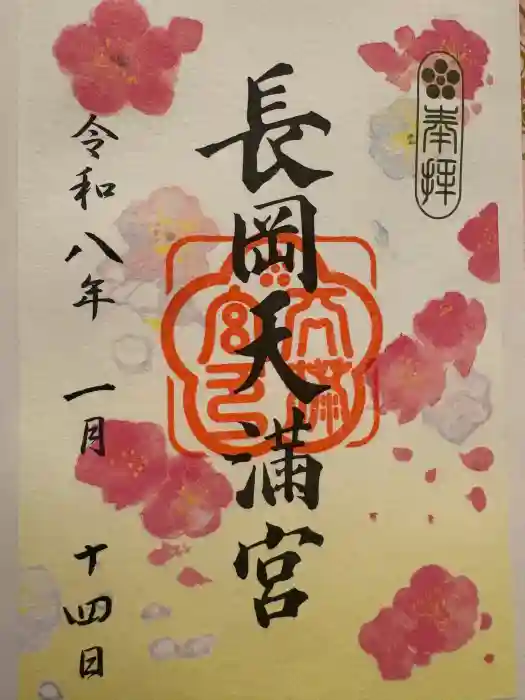 奉拝
長岡天満宮
天満宮印
令和八年 一月 十四日